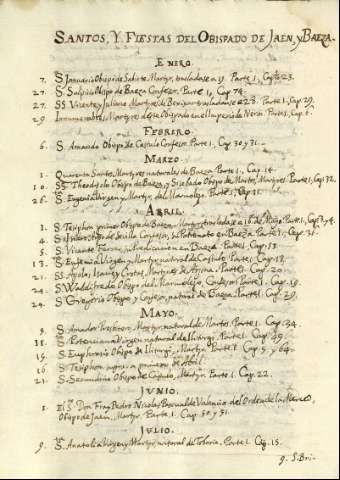 SANTOS, Y FIESTAS DEL OBISPADO DE JAEN, y BAEZA.
ENERO.
7. S. Januario Obispo de Martyr, trasladose a 19. Parte 1, Cap. 23.
27. S. Sulpicio Obispo de Baeza Confesor. Parte 1, Cap 74.
27. SS. Vicente y Juliano Martyres de trasladose a 28. Parte 1, Cap. 29.
29. Innumerables Martyres de este Obispado en el Imperio de Neron. Parte 1, Cap.
FEBRERO.
6. S. Amando Obispo de Castulo Confesor. Parte 1, Cap. 30 y 31.
MARZO.
1. Quarenta Santos Martyres naturales de Baeza. Parte 1, Cap. 14.
10. SS. Theodulo Obispo de Baeza, y Obispo de Martos, Martyres Parte 1, Cap. 32.
26. S. Eugenia Virgen y Martyr del Marmolejo. Parte 1, Cap. 21.
ABRIL.
1. S. Tesiphon primer Obispo de Baeza, Martyr, trasladose a 16 de Mayo. Parte 1, Cap. 3, y 4.
4. S. Isidro Obispo de Sevilla Confesor, en Baeza. Parte 1, Cap. 51.
5. S. Vicente Ferrer, su Predicacion en Baeza Parte 1, Cap. 53.
13. S. Eufemia Virgen y Martyr natural de Castulo Parte 1, Cap. 18.
21. SS. Apolo, Isacio, y Crotas, Martyres de Arjona. Parte 1, Cap. 20.
24. S. Obispo del Marmolejo, Confesor Parte 1, Cap. 19.
24. S. Gregorio Obispo y Confesor, natural de Baeza. Parte 1, Cap. 29.
MAYO.
9. S. Amador Presbitero, Martyr, natural de Martos. Parte 1, Cap. 34.
15. S. Potenciana Virgen natural de Iliturgi. Parte 1, Cap.
15. S. Euphrasio Obispo de Iliturgi, Martyr. Parte 1, Cap. 5, y 64.
16. S. Tesiphon a primero de Abril.
21. S. Secundino Obispo de Castulo, Martyr. Parte 1, Cap. 22.
JUNIO.
1. El Sr. Don Fray Pedro Nicolas Pascual de Valencia del Orden de la Merced,
Obispo de Jaen, Martyr. Parte 1. Cap. 50 y 51.
JULIO.
9. S. Anatolia Virgen y Martyr, natural de Tobaria. Parte 1, Cap. 15.
9. S. Bri-